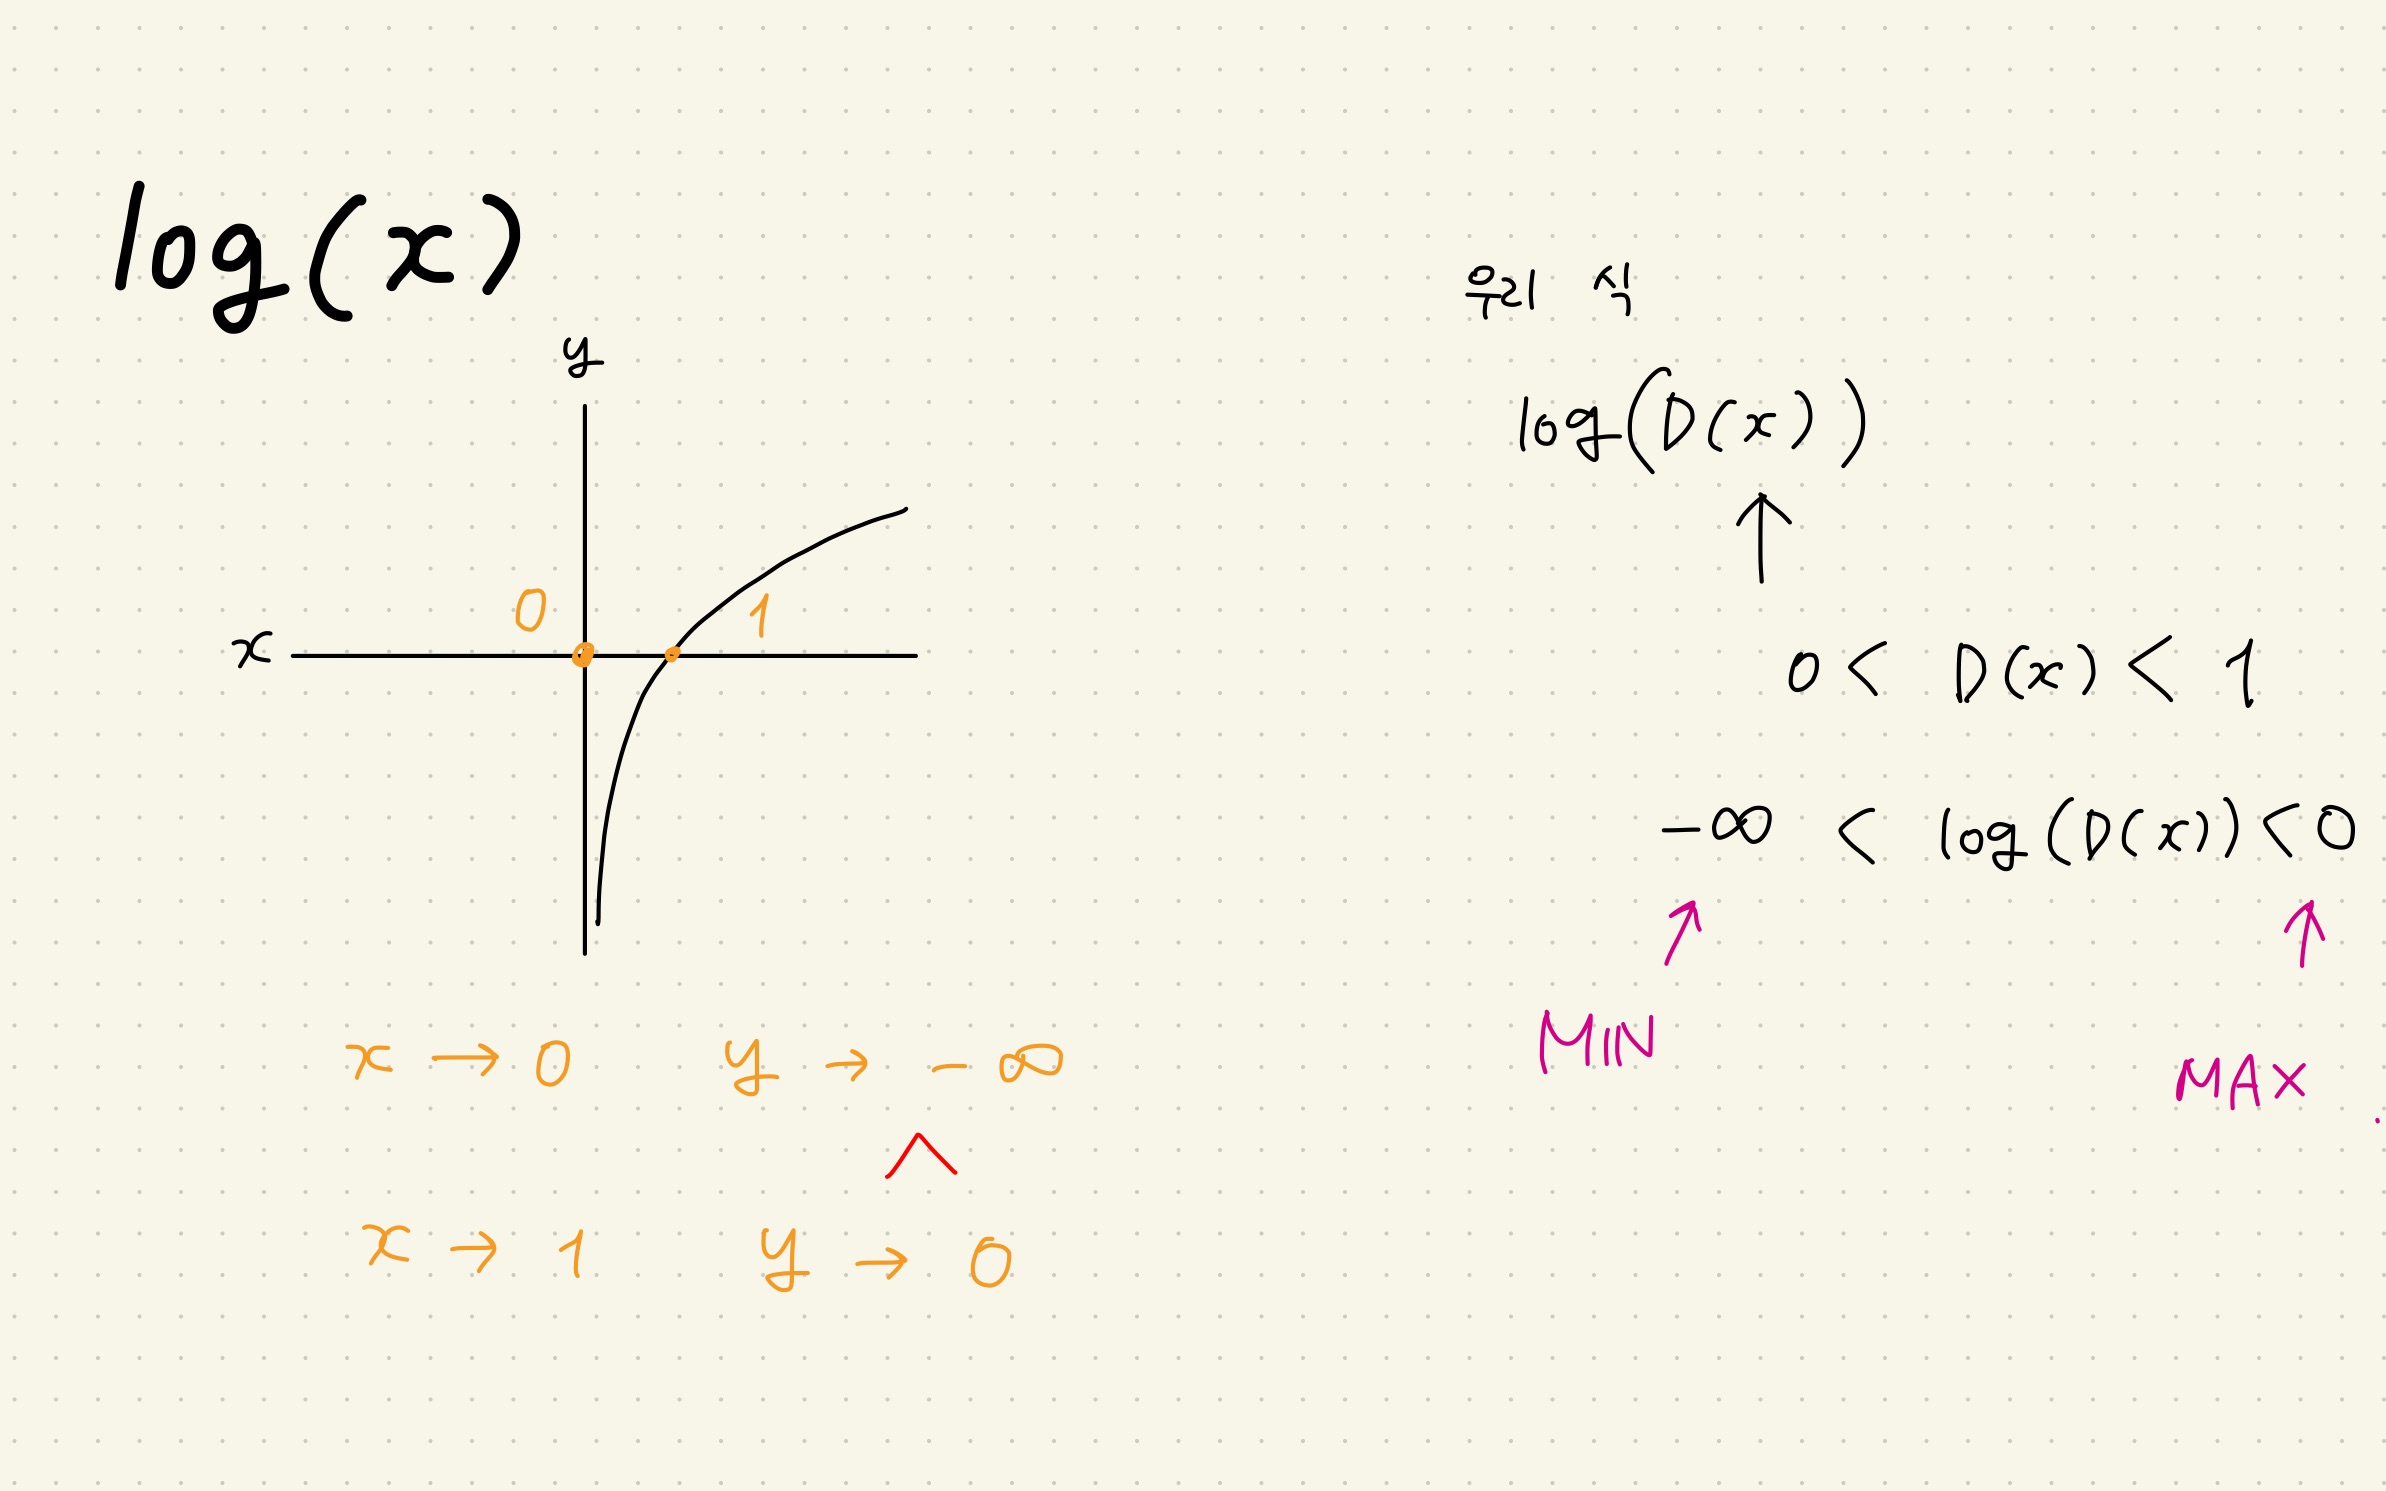 log(x)
y
0
1
x
x → 0 y → -∞
∧
x → 1 y → 0
우리 식
log(D(x))
↑
0 < D(x) < 1
-∞ < log(D(x)) < 0
MIN
MAX